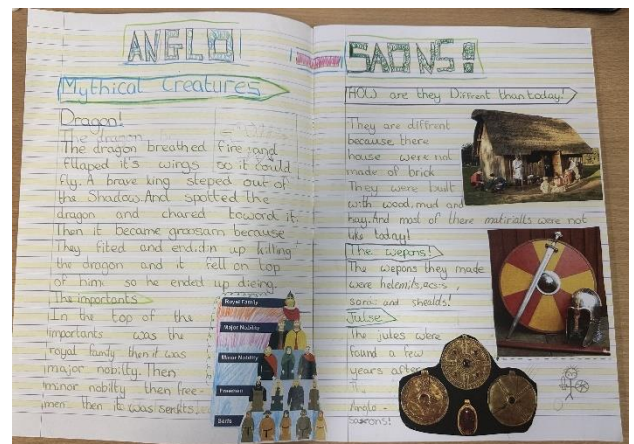 ANGLO
SAONS!
Mythical Creatures
Dragon!
The dragon
The dragon breathed fire and
fllaped it's wings so it could
fly. A brave king steped out of
the Shadow. And spotted the
dragon and chared toword it.
Then it became
They fited and endidin up killing
the dragon and it fell on top
of him so he ended up dieing.
The importants
In the top of the
importants was the
royal family then it was
major nobilty. Then
minor nobilty then free-
men. Then it was
Royal Family
Major Nobility
Minor Nobility
Freemen
Serfs
HOW are they Diffrent than today!
They are diffrent
because there
house were not
made of brick
They were built
with wood, mud and
hay. And most of there were not
like today!
The wepons!
The wepons they made
were
and shealds!
Julse
The jules were
found a few
years after
Anglo-